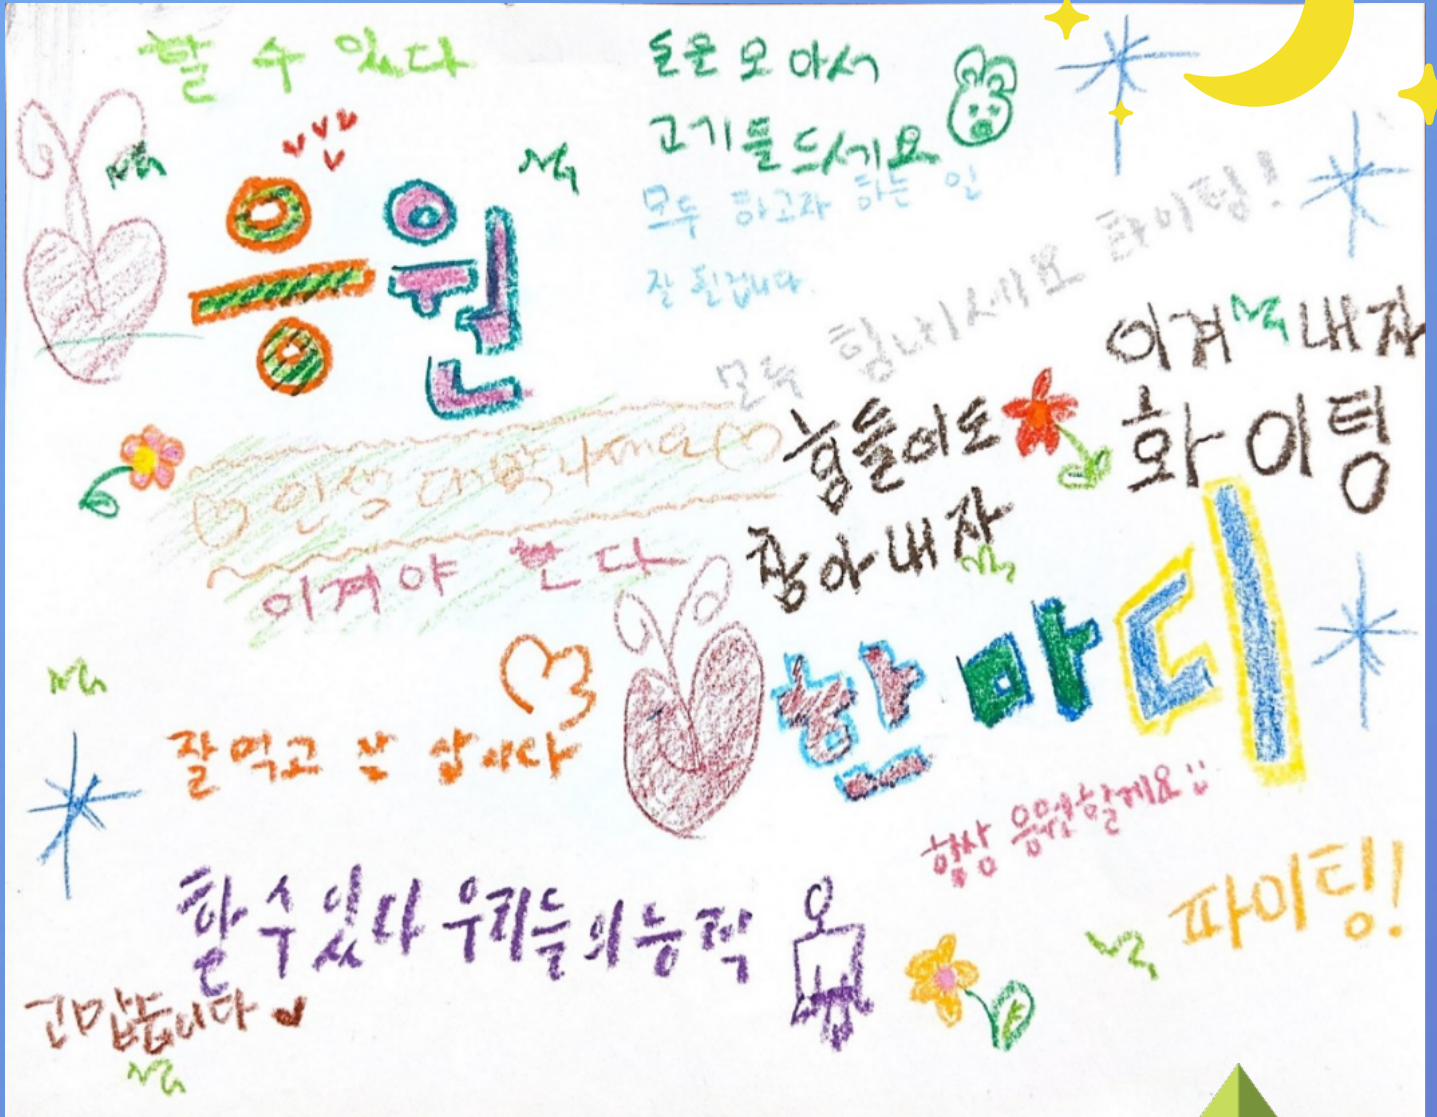 할 수 있다
돈은 모아서
고기를 드세요
모두 하고자 하는 일
잘 될겁니다.
모두 힘내세요 화이팅!
응원
이겨 내자
화이팅
힘들어도
참아내자
인생 대박나세요
이겨야 한다
한마디
잘먹고 잘 삽시다
항상 응원할게요
파이팅!
할 수 있다 우리들의 능력
고맙습니다